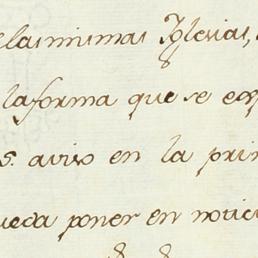 elasmismas Yglesias,
laforma que se esp
s. aviso en la prim
ueda poner en notici